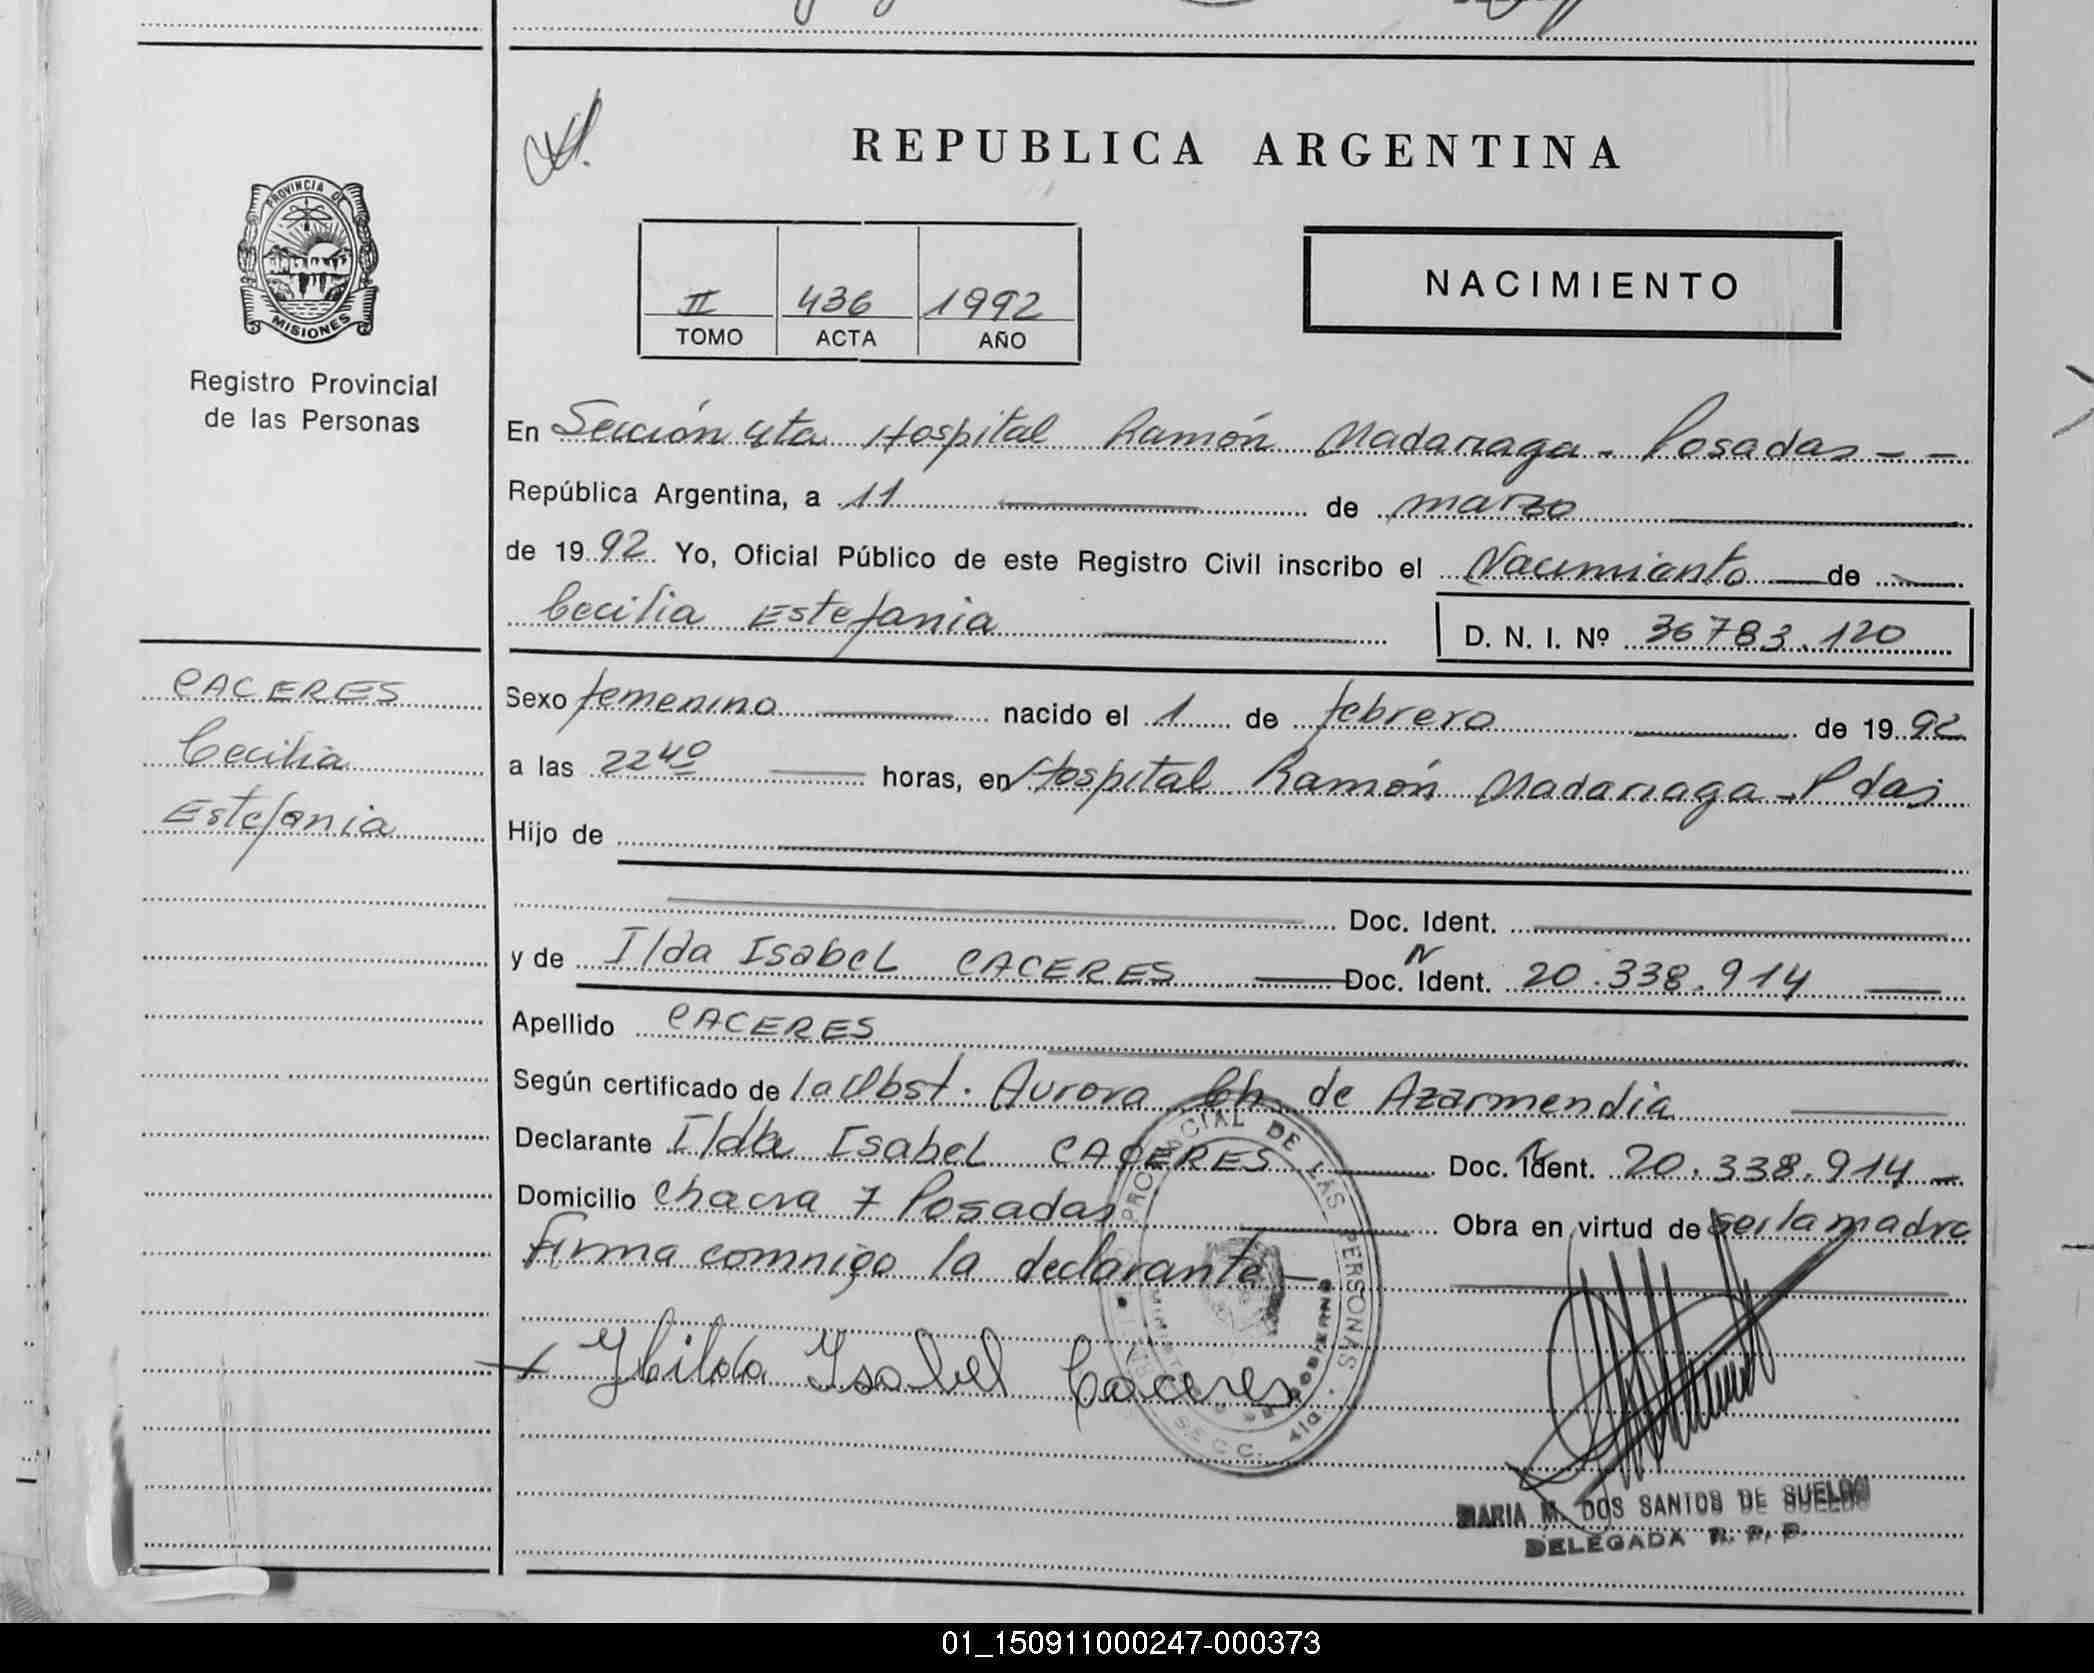 REPUBLICA ARGENTINA
PROVINCIA DE
MISIONES
Registro Provincial
de las Personas
II 436 1992
TOMO ACTA AÑO
NACIMIENTO
En Sección 4ta Hospital Ramón Madariaga - Posadas - -
República Argentina, a 11 de marzo
de 1992 Yo, Oficial Público de este Registro Civil inscribo el Nacimiento de
Cecilia Estefania D. N. I. Nº 36783.120
CACERES
Cecilia
Estefania
Sexo femenino nacido el 1 de febrero de 1992
a las 22 40 horas, en Hospital Ramón Madariaga - Pdas
Hijo de
Doc. Ident.
y de Ilda Isabel CACERES Doc. N Ident. 20.338.914
Apellido CACERES
Según certificado de la Obst. Aurora Ch de Azarmendia
Declarante Ilda Isabel CACERES Doc. Ident. 20.338.914
Domicilio Chacra 7 Posadas Obra en virtud de ser la madre
Firma comnigo la declarante
Hilda Isabel Caceres
PROVINCIAL DE LAS PERSONAS
SECC. 4ta.
MARIA M. DOS SANTOS DE SUELDO
DELEGADA R. P. P.
01_150911000247-000373